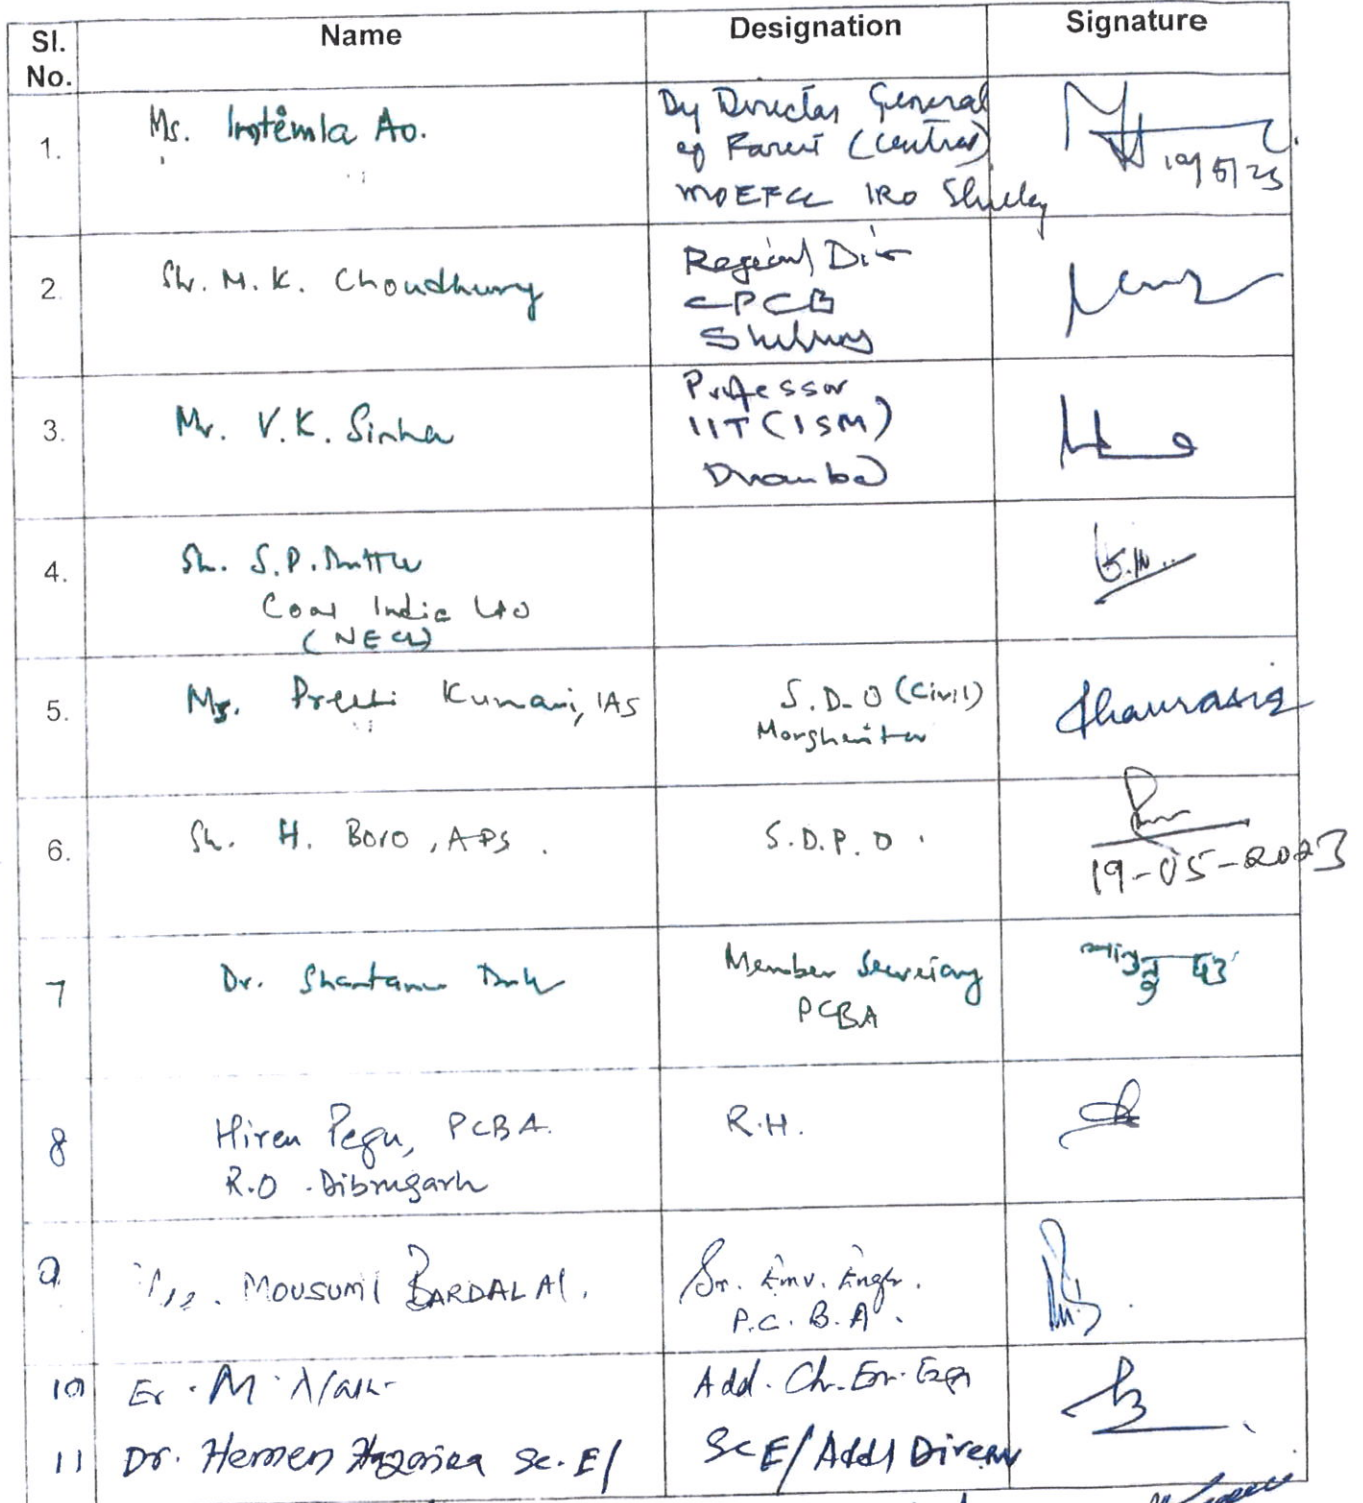 Sl. No. Name Designation Signature
1. Ms. Irotemla Ao. Dy Director General
of Forest (Central) 19/5/23
MOEFCC IRO
2. Sh. M. K. Choudhury Regional Dir
CPCB
Shillong
3. Mr. V.K. Sinha Professor
IIT (ISM)
Dhanbad
4. Sh. S.P. Dutta
Coal India Ltd
(NEC)
5. Ms. Preeti Kumari, IAS S.D.O (Civil) Chaurasia
Margherita
6. Sh. H. Boro, APS. S.D.P.O.
19-05-2023
7 Dr. Shantanu Dutta Member Secretary শান্তনু দত্ত
PCBA
8 Hiren Pegu, PCBA. R.H.
R.O. Dibrugarh
9. Mousumi BARDALAI. Sr. Env. Engr.
P.C.B.A.
10 Er. M. Add. Ch. En. Eng
11 Dr. Hemen Hazarika Sc. E/ Sc E/Addl Director